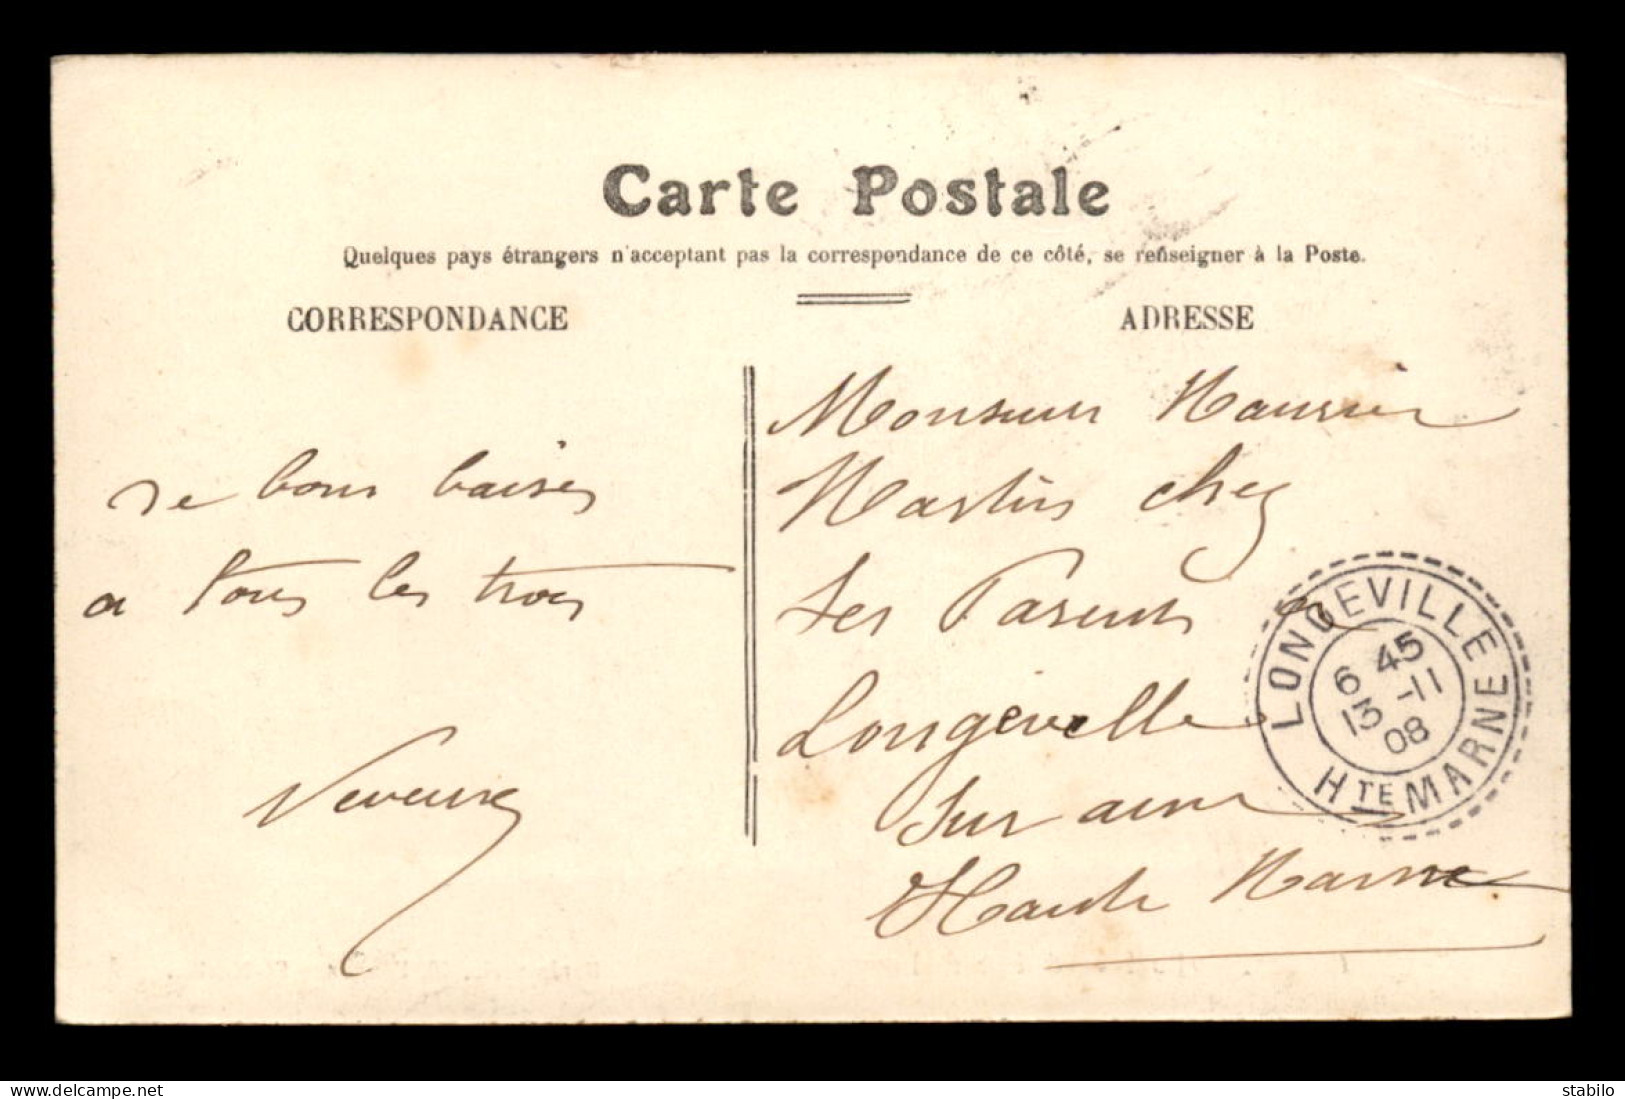 Carte Postale
Quelques pays étrangers n'acceptent pas la correspondance de ce côté, se renseigner à la Poste.
CORRESPONDANCE
ADRESSE
de bons baisers
a tous les trois
Monsieur Maurice
Martin chez
Ses Parents a
Longeville
Sur aine
Haute Marne
LONGEVILLE
6 45
13 -11
08
HTE MARNE
www.delcampe.net
stabilo